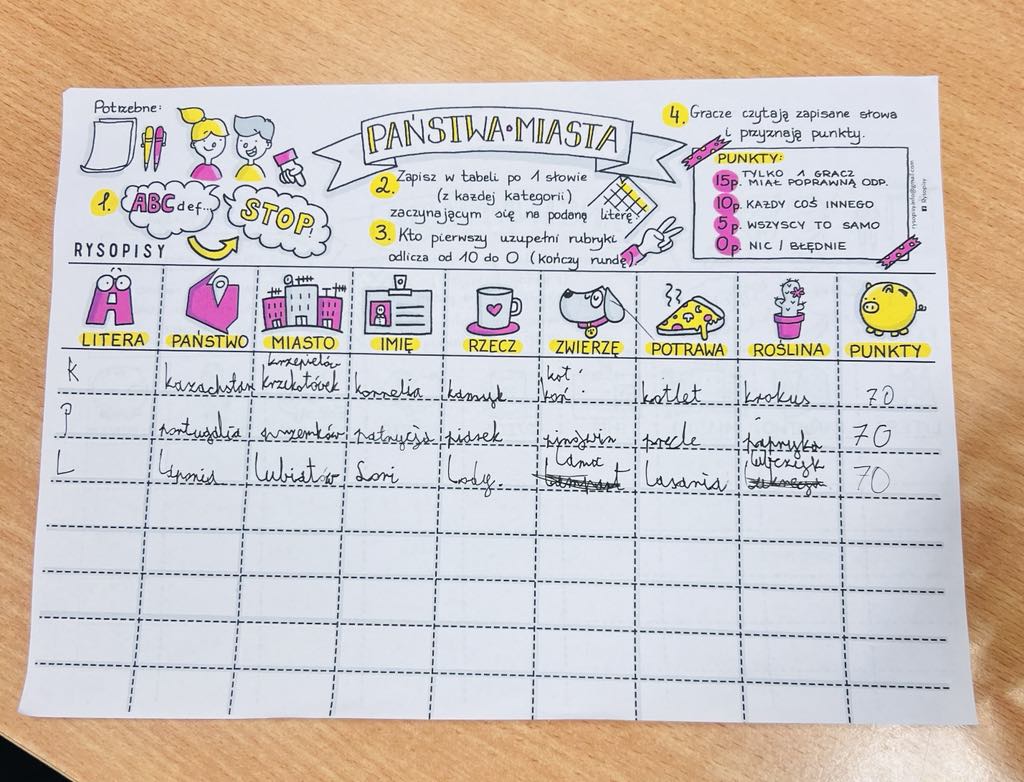 Potrzebne:
PAŃSTWA·MIASTA
1. ABC def... STOP!
RYSOPISY
2. Zapisz w tabeli po 1 słowie
(z każdej kategorii)
zaczynającym się na podaną literę.
3. Kto pierwszy uzupełni rubryki
odlicza od 10 do 0 (kończy rundę)
4. Gracze czytają zapisane słowa
i przyznają punkty.
PUNKTY:
15p. TYLKO 1 GRACZ
MIAŁ POPRAWNĄ ODP.
10p. KAŻDY COŚ INNEGO
5p. WSZYSCY TO SAMO
0p. NIC / BŁĘDNIE
rysopisy.info@gmail.com
Rysopisy
LITERA PAŃSTWO MIASTO IMIĘ RZECZ ZWIERZĘ POTRAWA ROŚLINA PUNKTY
krzepielów kot
K kazachstan krzekotówek kornelia kamyk koń kotlet krokus 70
P portugalia przemków patrycja piasek pingwin precle papryka 70
lama lubczyk
L laponia lubiatów Lori lody. lasania 70